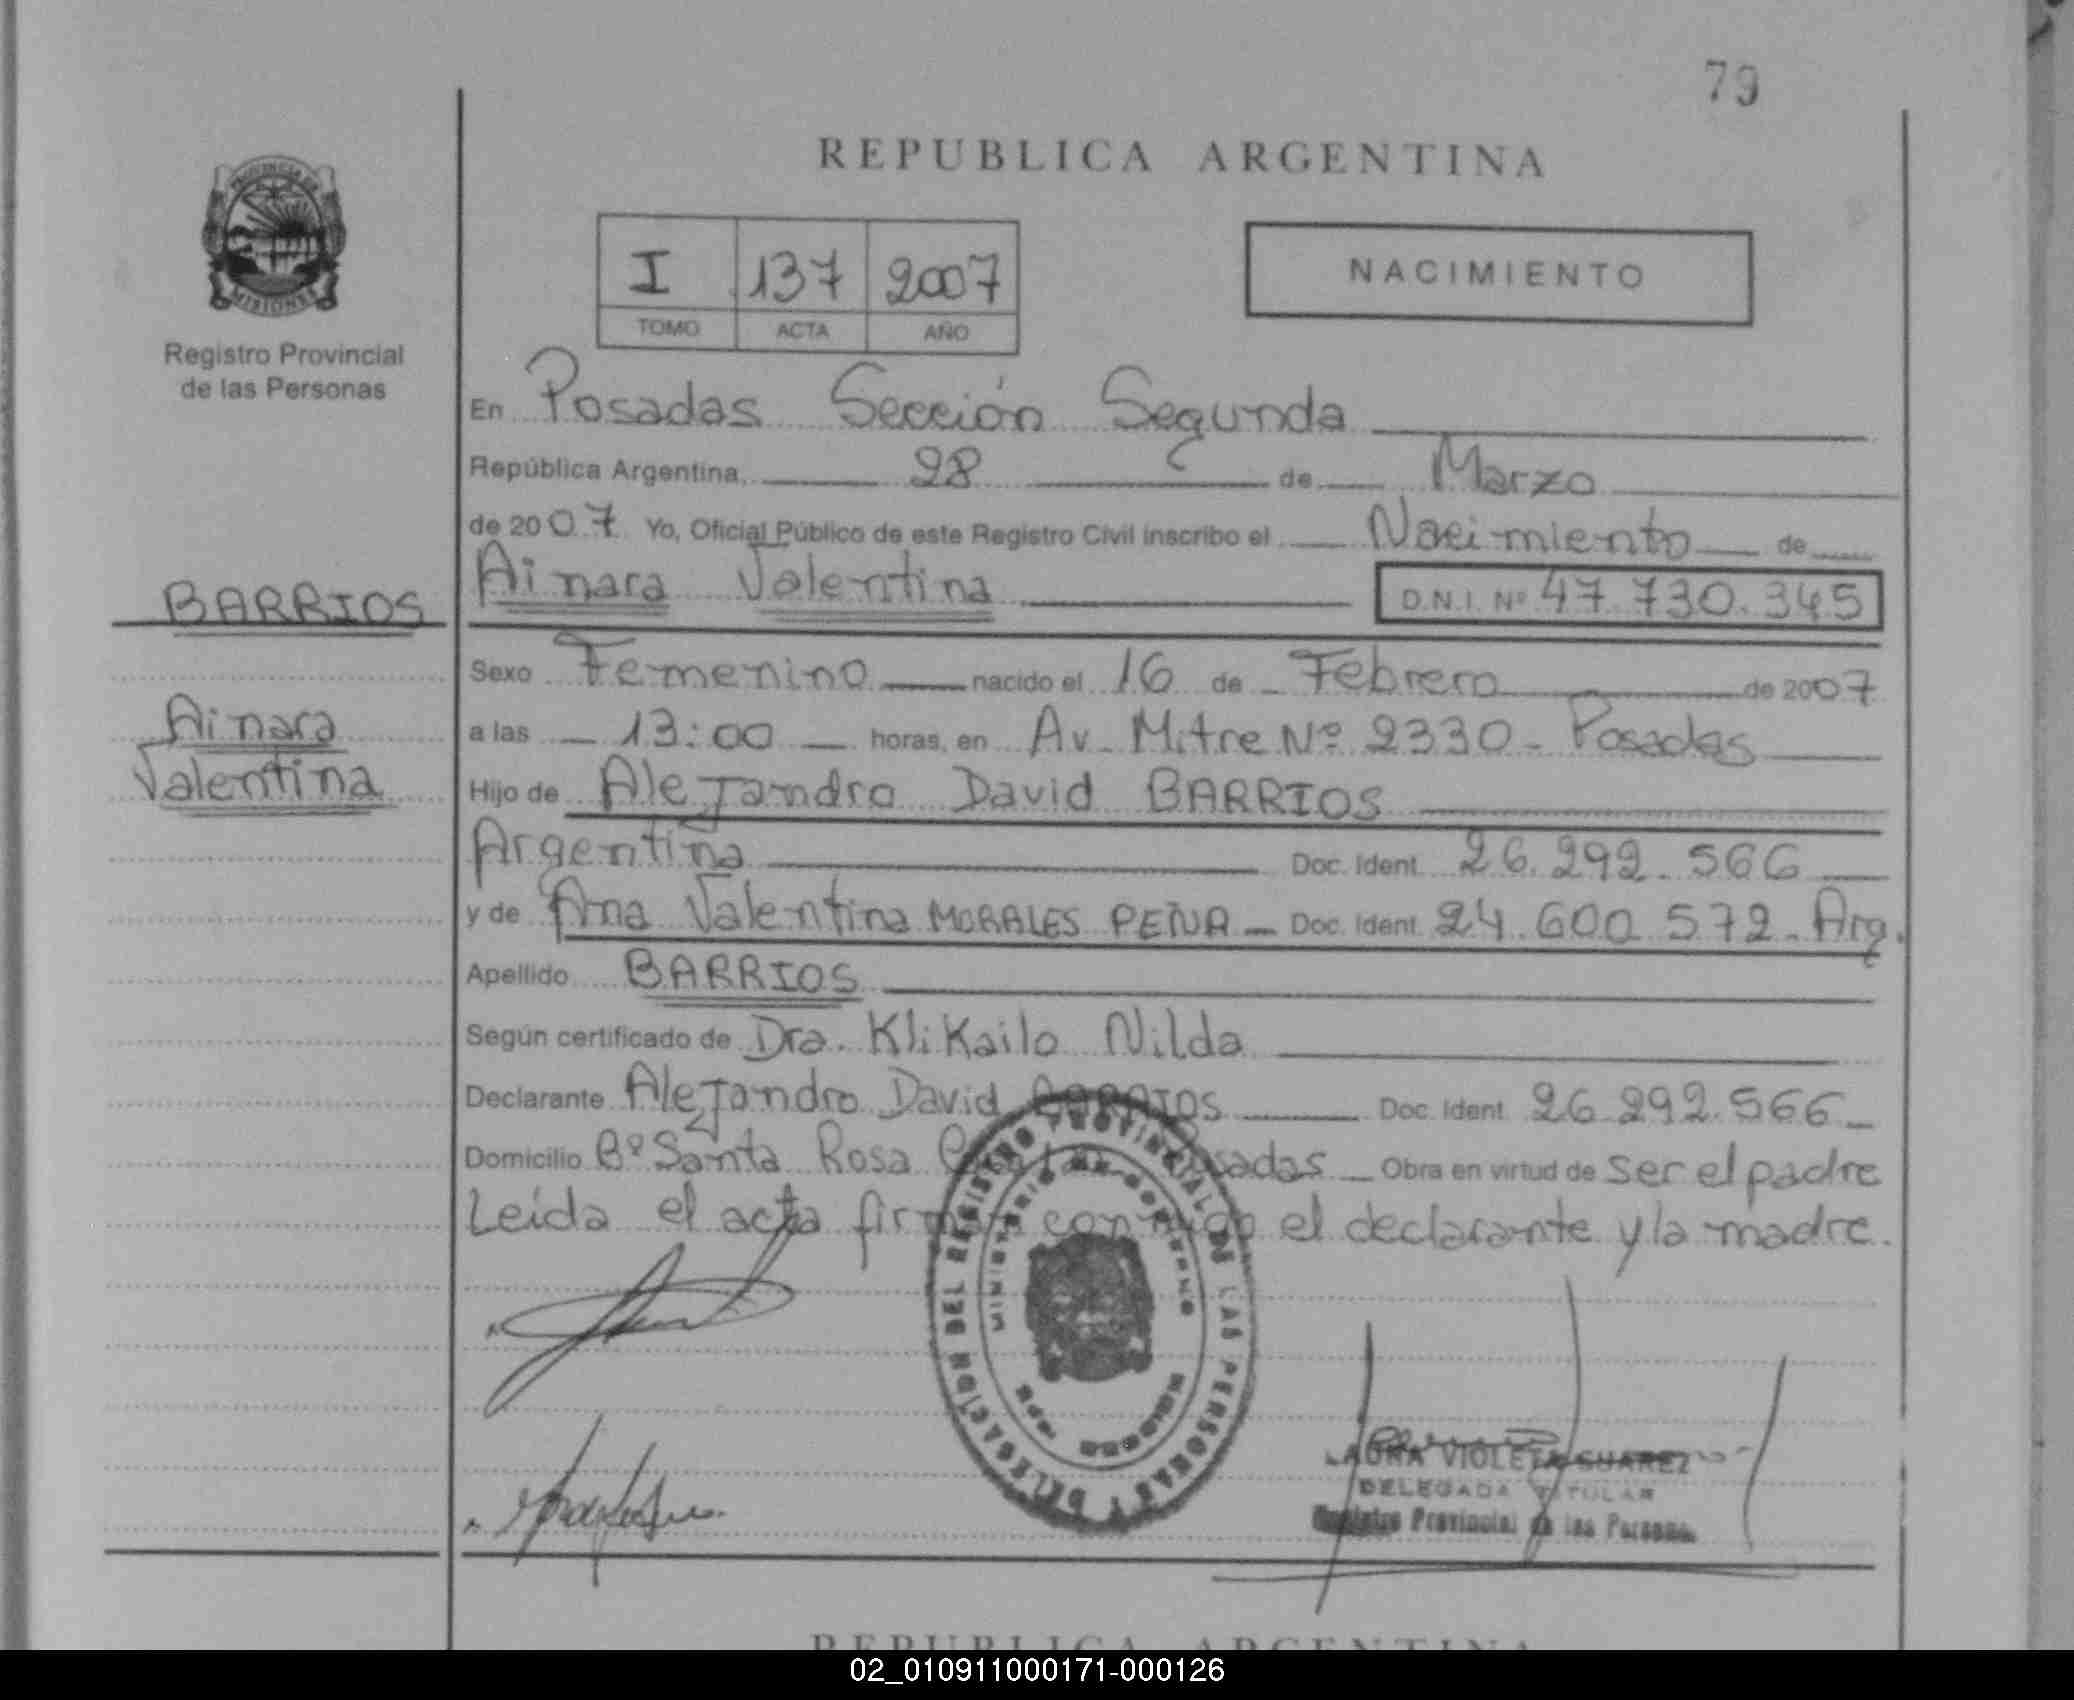 79
REPUBLICA ARGENTINA
PROVINCIA DE
MISIONES
Registro Provincial
de las Personas
I 137 2007
TOMO ACTA AÑO
NACIMIENTO
En Posadas Sección Segunda
República Argentina, 28 de Marzo
de 2007 Yo, Oficial Público de este Registro Civil inscribo el Nacimiento de
Ainara Valentina D.N.I. Nº 47.730.345
BARRIOS
Ainara
Valentina
Sexo Femenino nacido el 16 de Febrero de 2007
a las 13:00 horas, en Av. Mitre Nº 2330 - Posadas
Hijo de Alejandro David BARRIOS
Argentina Doc. Ident. 26.292.566
y de Ana Valentina MORALES PEÑA Doc. Ident. 24.600.572 - Arg.
Apellido BARRIOS
Según certificado de Dra. Klikailo Nilda
Declarante Alejandro David BARRIOS Doc. Ident. 26.292.566
Domicilio Bº Santa Rosa Posadas Obra en virtud de ser el padre
Leída el acta firman conmigo el declarante y la madre.
DELEGACIÓN DEL REGISTRO PROVINCIAL DE LAS PERSONAS
MINISTERIO DE GOBIERNO
LAURA VIOLETA SUAREZ
DELEGADA TITULAR
Registro Provincial de las Personas
REPUBLICA ARGENTINA
02_010911000171-000126